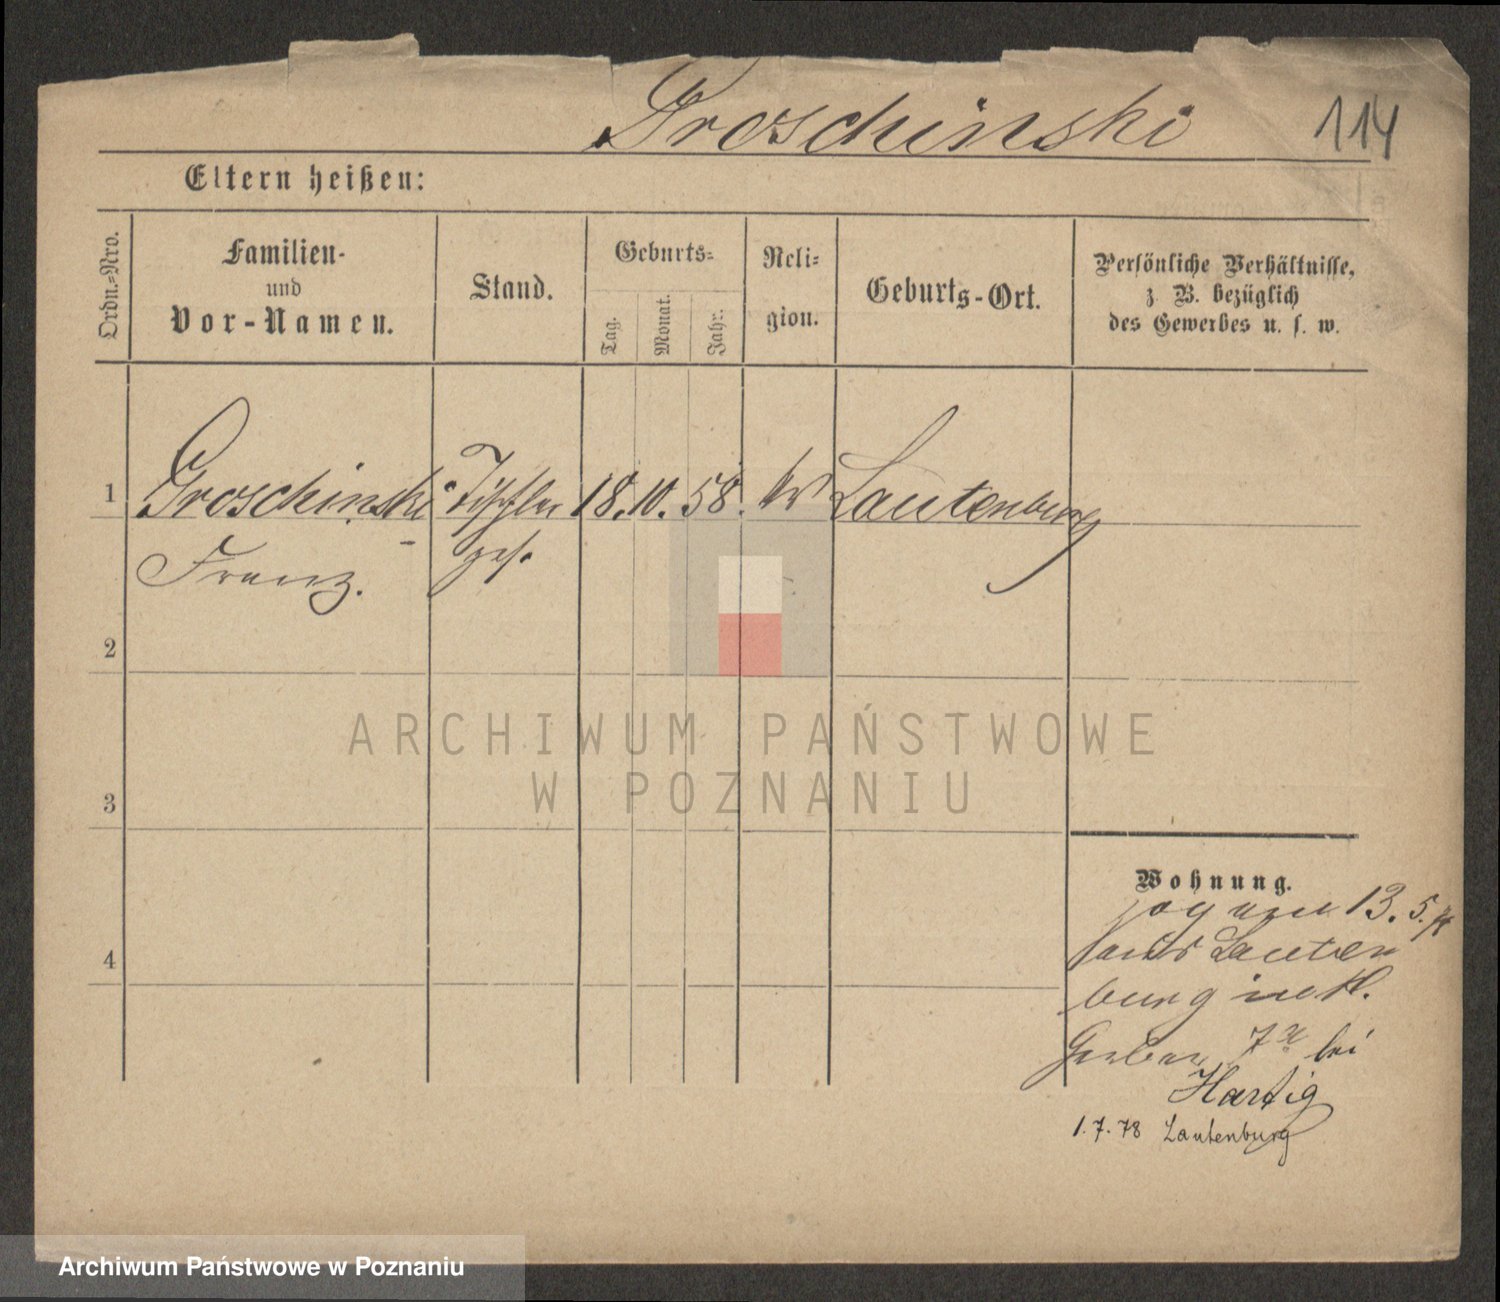 Groschinski 114
Eltern heißen:
Ordn.-Nro.
Familien-
und
Vor-Namen.
Stand.
Geburts-
Tag.
Monat.
Jahr.
Reli-
gion.
Geburts-Ort.
Persönliche Verhältnisse,
z. B. bezüglich
des Gewerbes u. s. w.
1 Groschinski Tischler 18. 10. 58. Lautenburg
Franz. ges.
2
ARCHIWUM PAŃSTWOWE
W POZNANIU
3
Wohnung.
13. 5.
aus Lauten
4
burg in Kl.
Gerber 7 bei
Hartig
1. 7. 78 Lautenburg
Archiwum Państwowe w Poznaniu